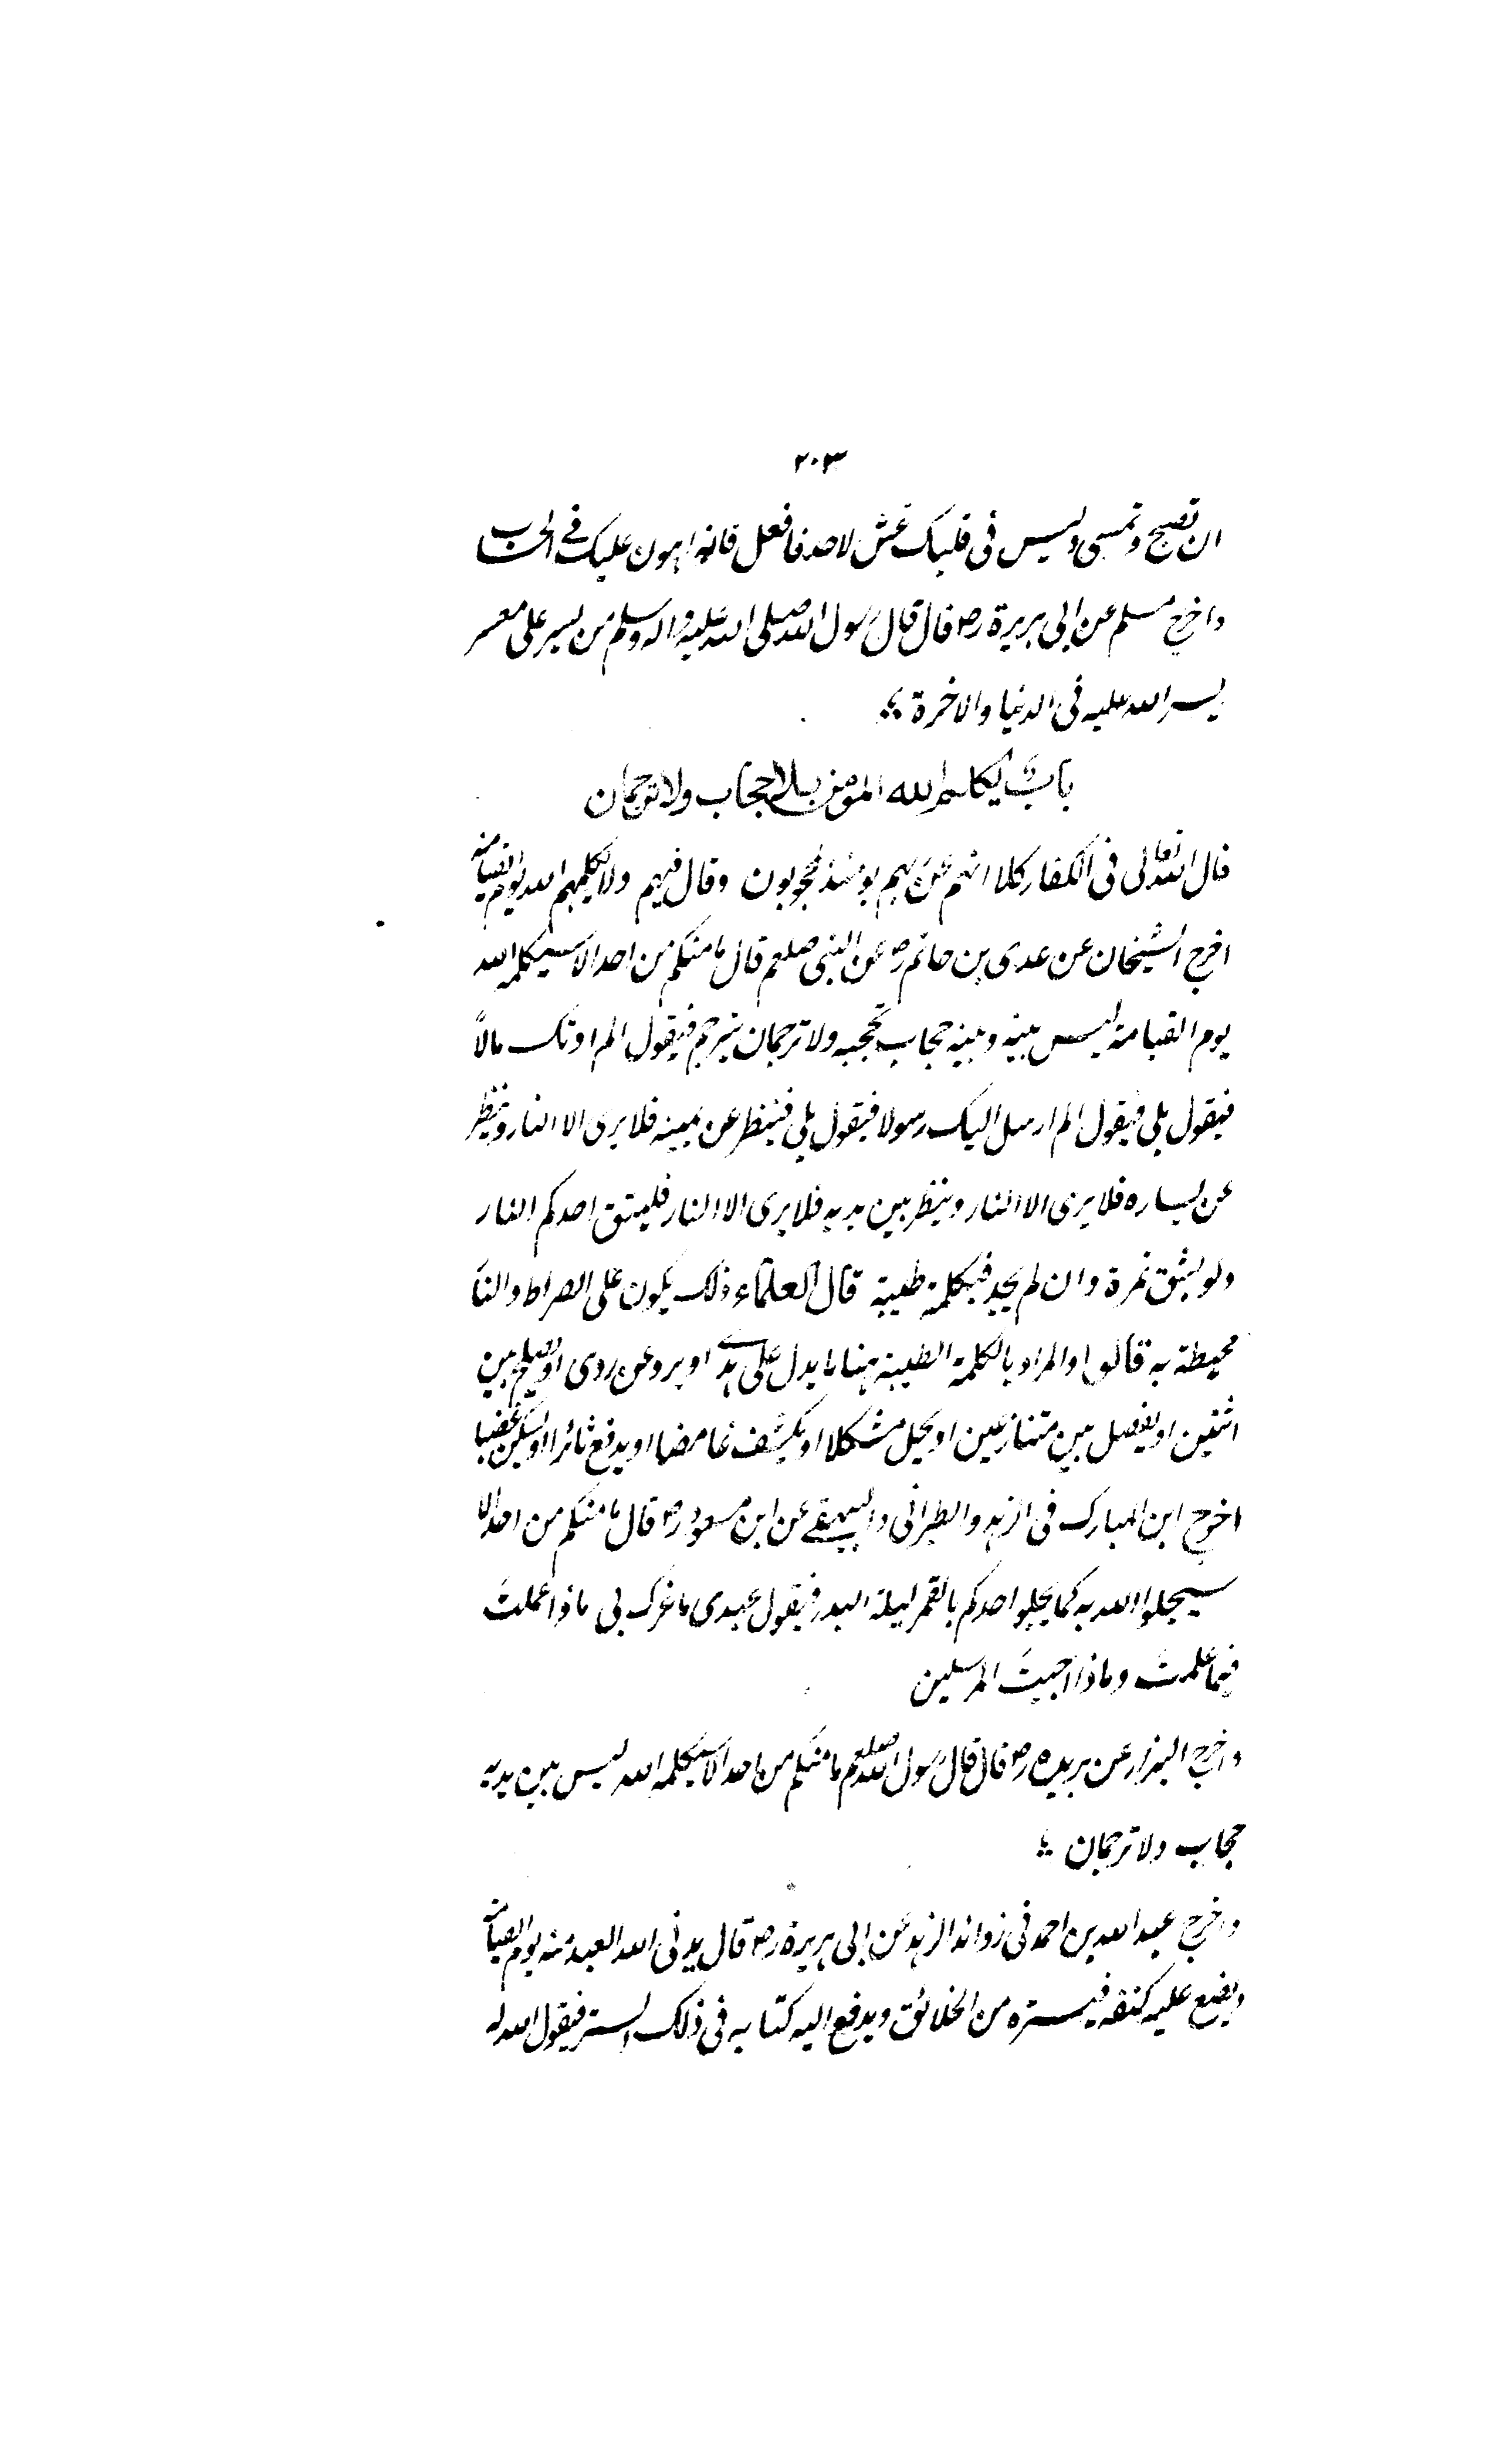 ٢٠٣
ان تصبح وتمسی ولیس فی قلبک غش لاحد فافعل فانه اهون علیک فے الحساب
واخرج مسلم عن ابی هریرة رض قال قال رسول الله صلی الله علیه واله وسلم من یسر علی معسر
یسر الله علیه فی الدنیا والاخرة
باب یکلم الله المؤمن بلا حجاب ولا ترجمان
قال الله تعالی فی الکفار کلا انهم عن ربهم یومئذ لمحجوبون وقال فیهم ولا یکلمهم الله یوم القیامة
اخرج الشیخان عن عدی بن حاتم رض عن النبی صلعم قال ما منکم من احد الا سیکلمه الله
یوم القیامة لیس بینه وبینه حجاب یحجبه ولا ترجمان یترجم فیقول الم اوتک مالاً
فیقول بلی فیقول الم ارسل الیک رسولا فیقول بلی فینظر عن یمینه فلا یری الا النار وینظر
عن یساره فلا یری الا النار وینظر بین یدیه فلا یری الا النار فلیتق احدکم النار
ولو بشق تمرة وان لم یجد فبکلمة طیبة قال العلماء ذلک یکون علی الصراط والنا
محیطة به قالوا والمراد بالکلمة الطیبة هنا ما یدل علی هدے او یرد عن ردی او یصلح بین
اثنین او یفصل بین متنازعین او یحل مشکلا او یکشف غامضا او یدفع ثائرا او یسکن غضبا
اخرج ابن المبارک فی الزهد والطبرانی والبیهقے عن ابن مسعود رض قال ما منکم من احد الا
سیخلوا الله به کما یخلوا احدکم بالقمر لیلة البدر فیقول عبدی ما غرک بی ماذا عملت
فیما علمت وماذا اجبت المرسلین
واخرج البزار عن بریده رض قال قال رسول الله صلعم ما منکم من احد الا سیکلمه الله لیس بین یدیه
حجاب ولا ترجمان
واخرج عبد الله بن احمد فی زوائد الزهد عن ابی هریرة رض قال یدنی الله العبد منه یوم القیامة
ویضع علیه کنفه فیستره من الخلائق ویدفع الیه کتابه فی ذلک الستر فیقول الله له